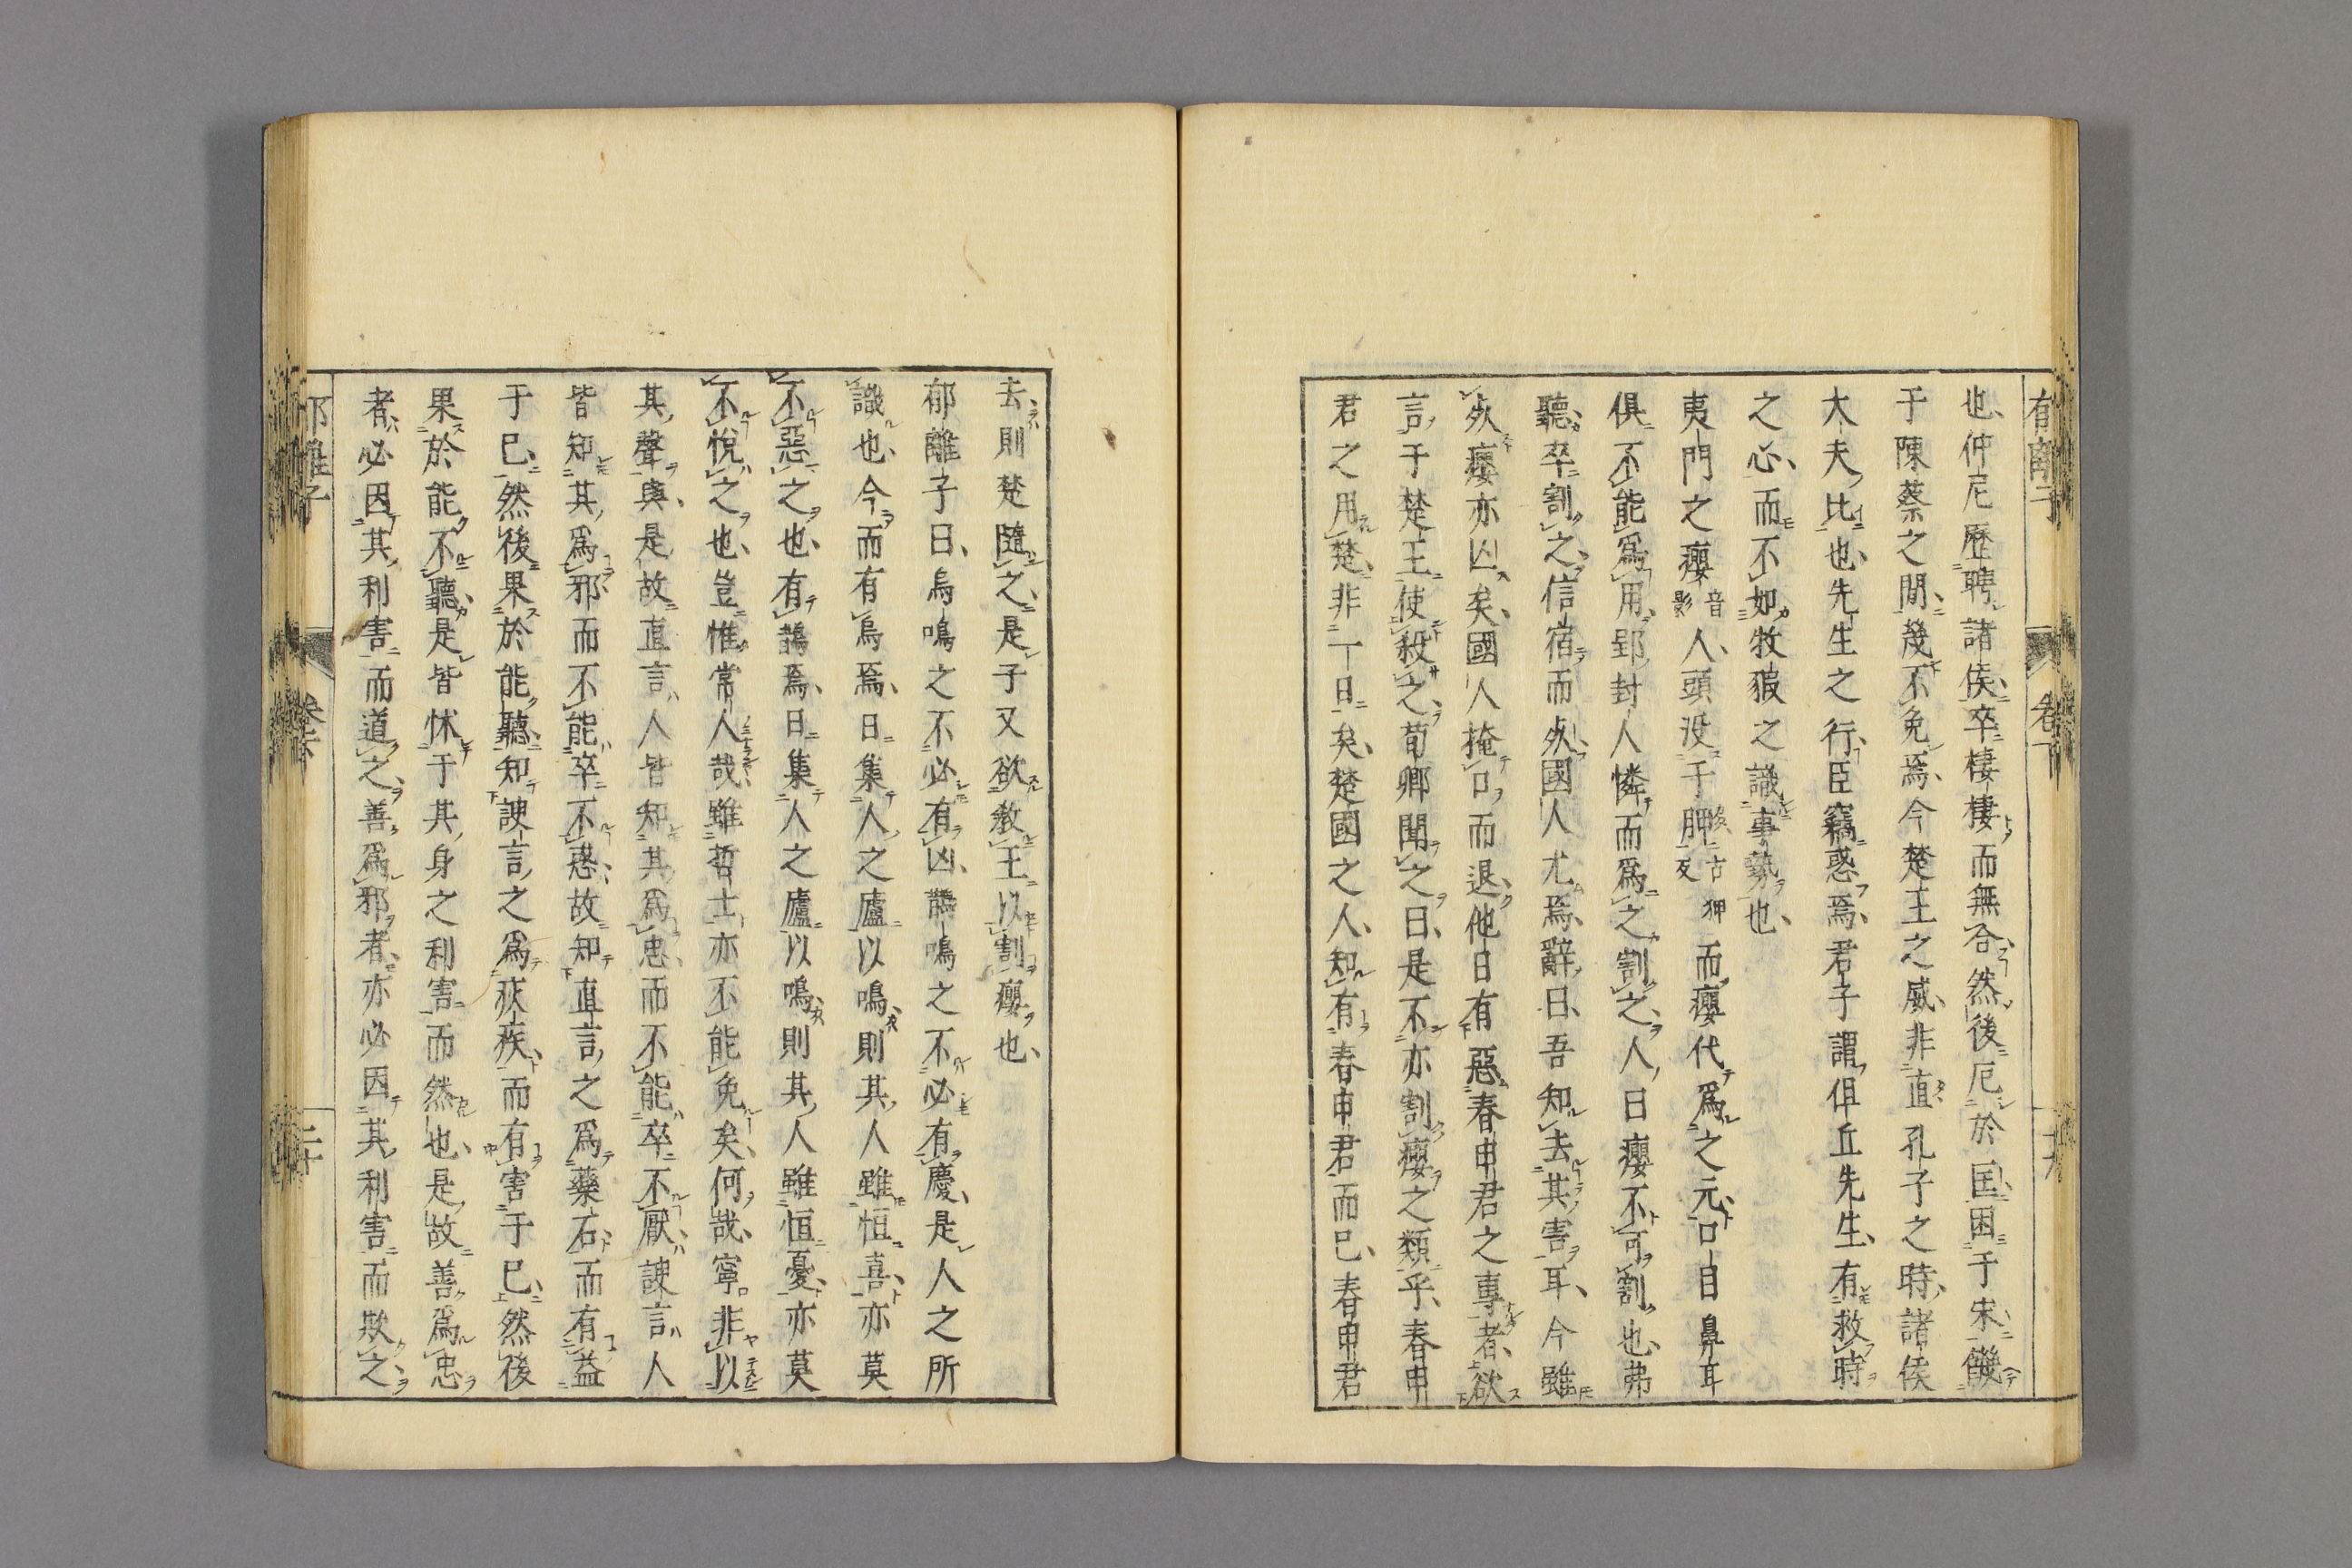 郁離子 卷下 十九
也仲尼歷聘諸侯卒棲棲而無合然後厄於匡困于宋饑
于陳蔡之間幾不免焉今楚王之威非直孔子之時諸侯
大夫比也先生之行臣竊惑焉君子謂但丘先生有救時
之心而不如牧豭之識事勢也
夷門之癭音影人頭沒于胛古狎反而癭代爲之元口目鼻耳
俱不能爲用郢封人憐而爲之割之人曰癭不可割也弗
聽卒割之信宿而死國人尤焉辭曰吾知去其害耳今雖
死癭亦凶矣國人掩口而退他日有惡春申君之專者欲
言于楚王使殺之荀卿聞之曰是不亦割癭之類乎春申
君之用楚非一日矣楚國之人知有春申君而已春申君
去則楚隨之是子又欲教王以割癭也
郁離子曰烏鳴之不必有凶鵲鳴之不必有慶是人之所
識也今而有烏焉日集人之廬以鳴則其人雖恒喜亦莫
不惡之也有鵲焉日集人之廬以鳴則其人雖恒憂亦莫
不悅之也豈惟常人哉雖哲士亦不能免矣何哉寧非以
其聲與是故直言人皆知其爲忠而不能卒不厭諛言人
皆知其爲邪而不能卒不惑故知直言之爲藥石而有益
于已然後果於能聽知諛言之爲疢疾而有害于已然後
果於能不聽是皆怵于其身之利害而然也是故善爲忠
者必因其利害而道之善爲邪者亦必因其利害而欺之
郁離子 卷下 二十